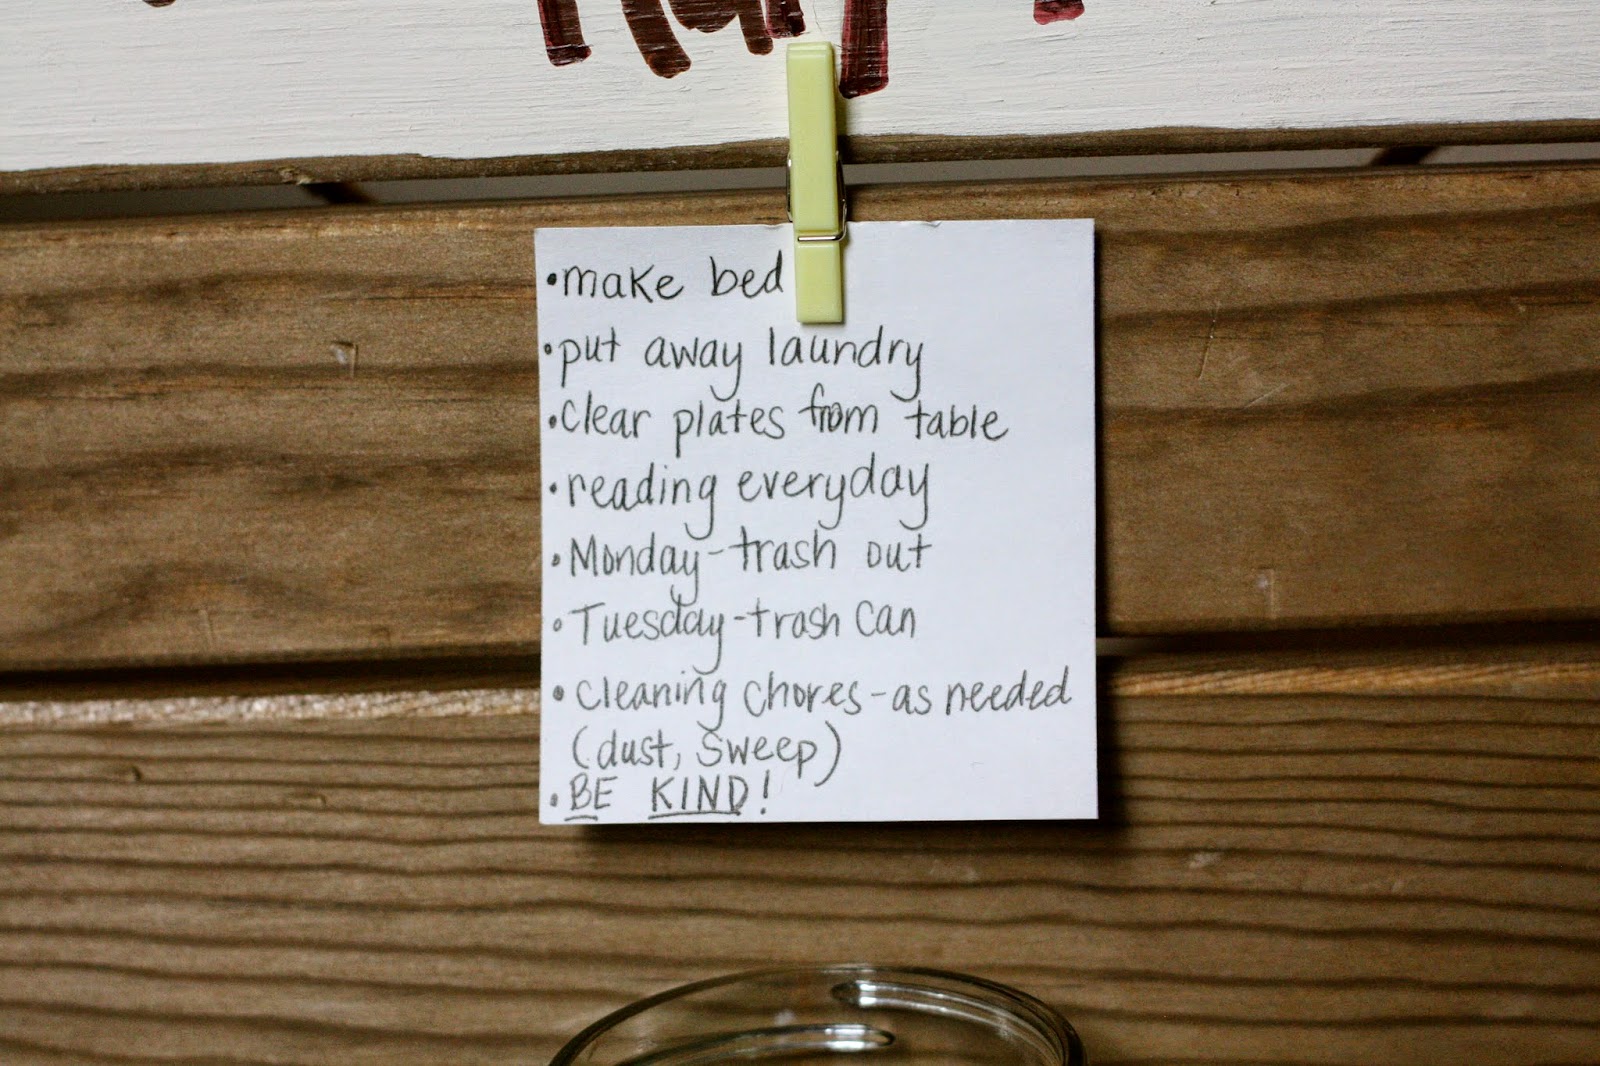 •make bed
•put away laundry
•Clear plates from table
•reading everyday
•Monday-trash out
•Tuesday-trash can
•Cleaning chores-as needed
(dust, sweep)
•BE KIND!